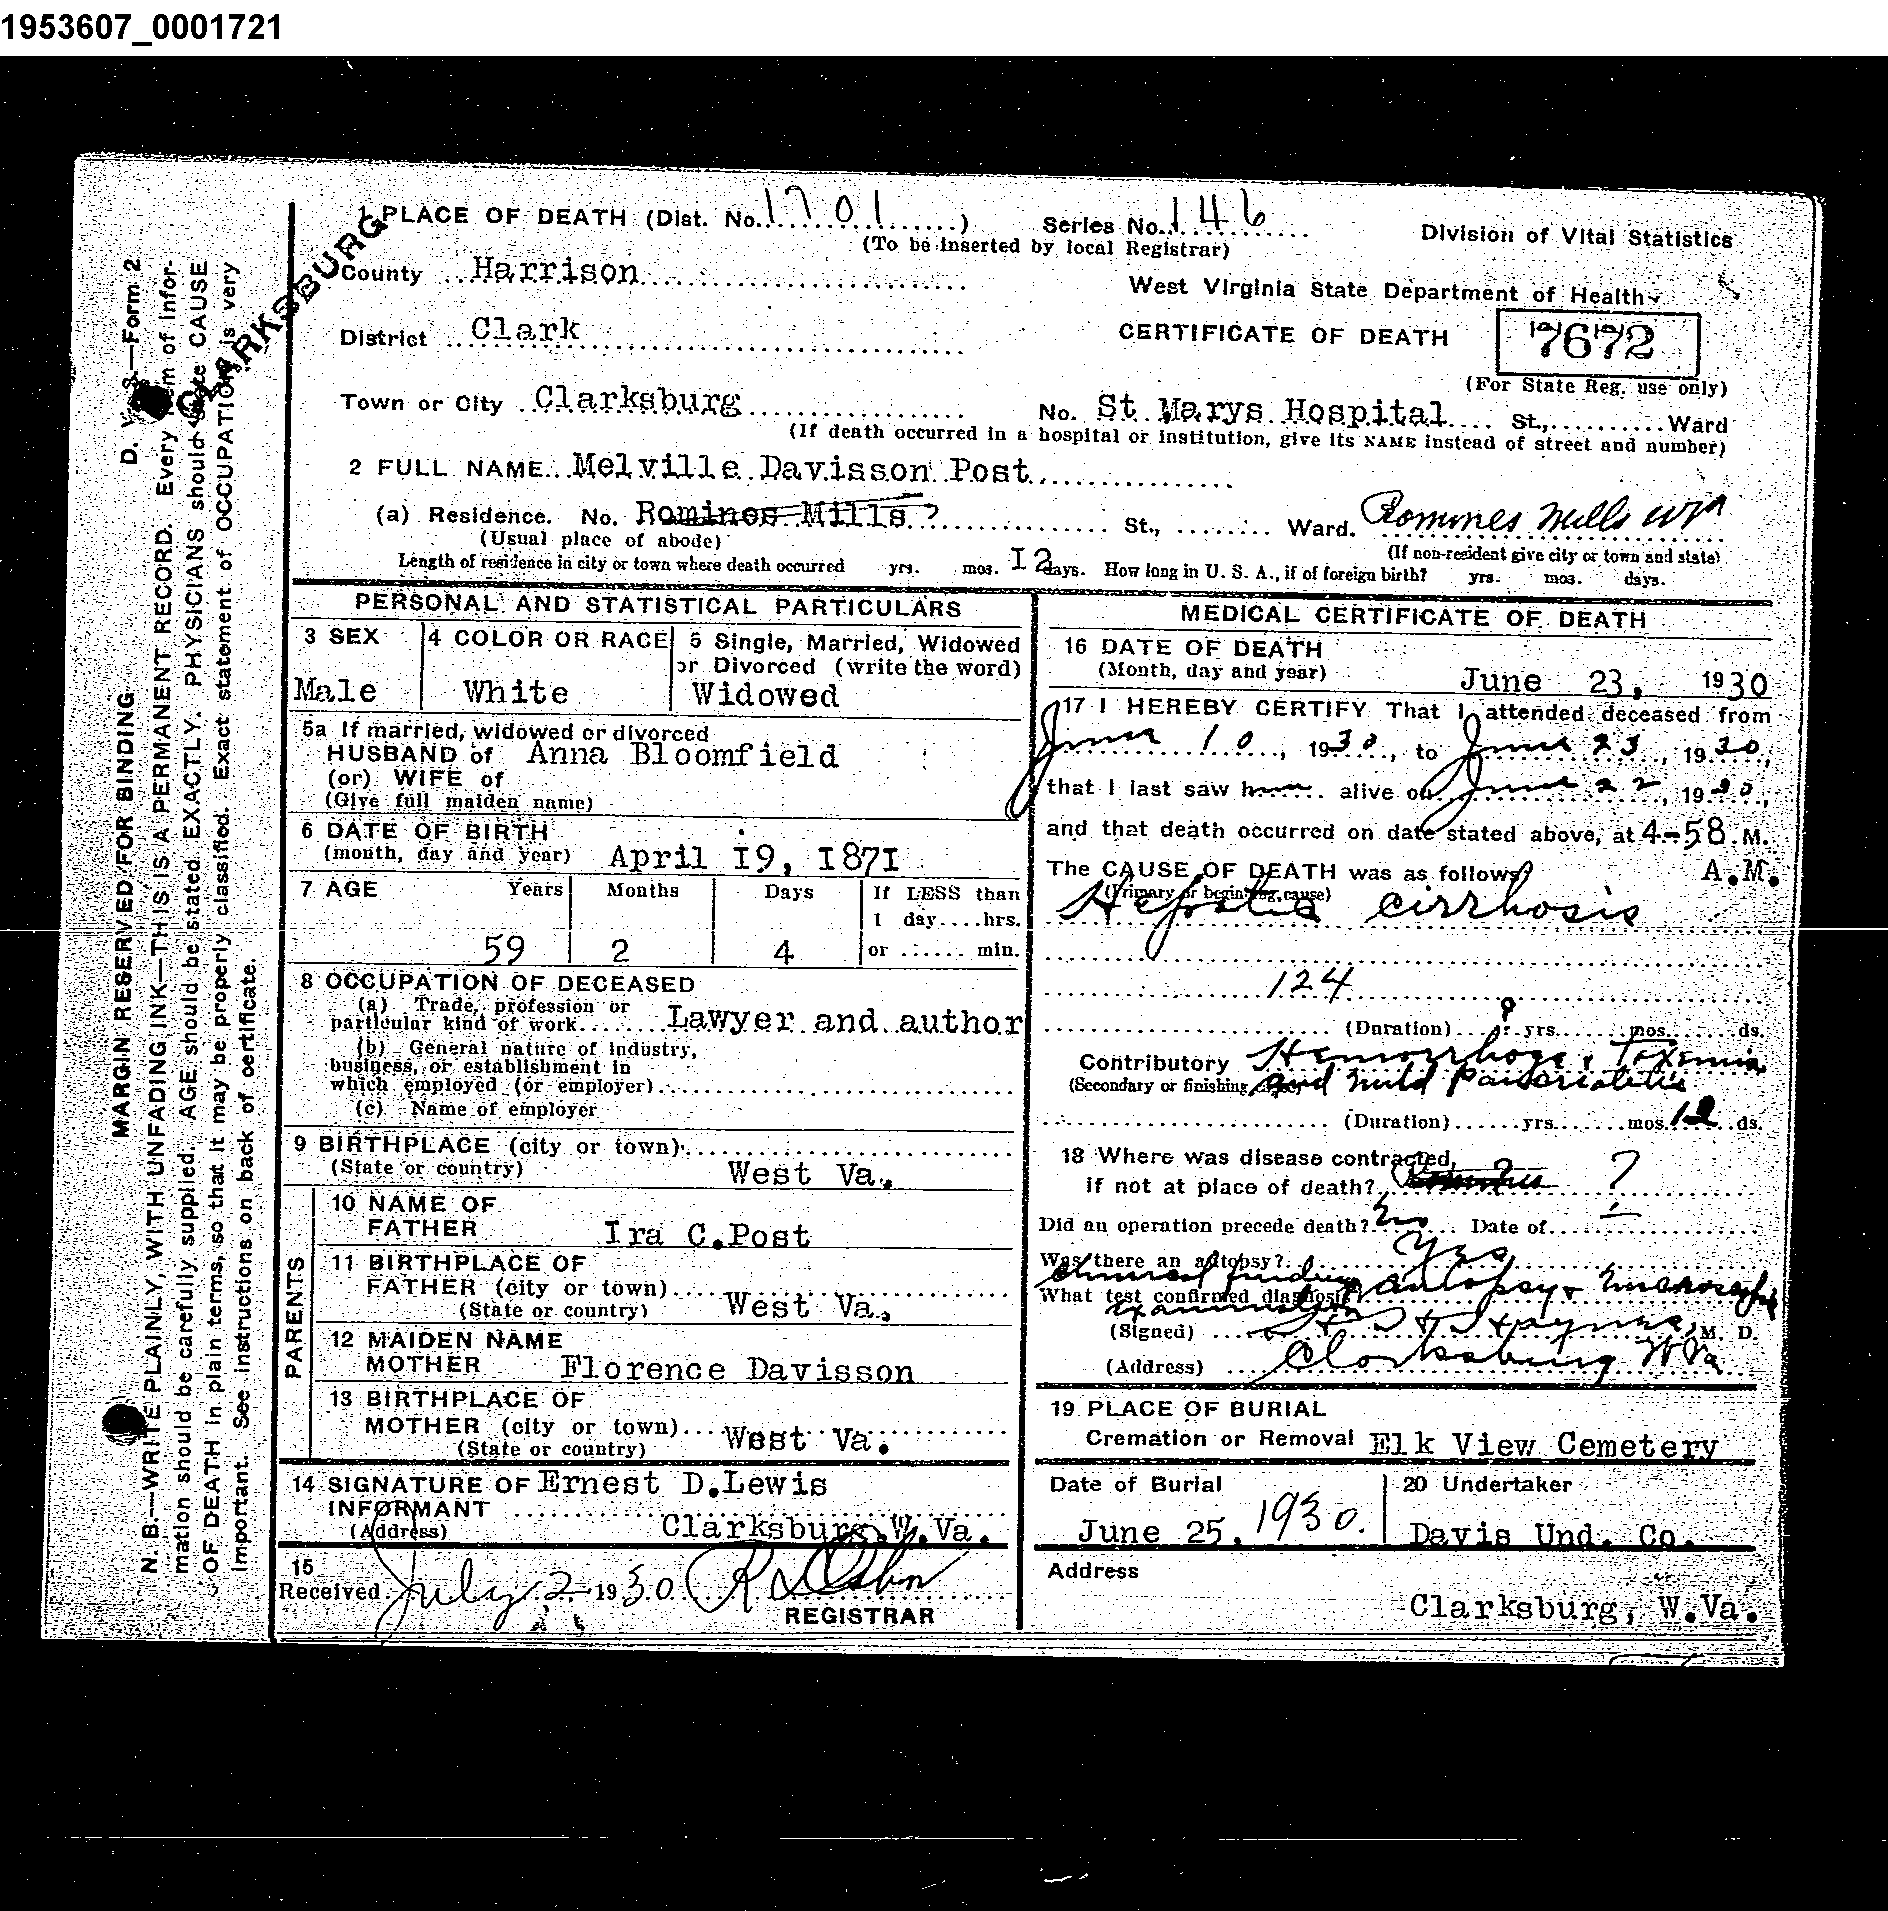 1953607_0001721
1 PLACE OF DEATH (Dist. No. 1701) Series No. 146
(To be inserted by local Registrar)
Division of Vital Statistics
County Harrison
West Virginia State Department of Health
District Clark
CERTIFICATE OF DEATH 7672
(For State Reg. use only)
Town or City Clarksburg No. St Marys Hospital St., Ward
(If death occurred in a hospital or institution, give its NAME instead of street and number)
2 FULL NAME Melville Davisson Post
(a) Residence. No. Romines Mills ? St., Ward. Romines Mills WVa
(Usual place of abode) (If non-resident give city or town and state)
Length of residence in city or town where death occurred yrs. mos. 12 days. How long in U. S. A., if of foreign birth? yrs. mos. days.
PERSONAL AND STATISTICAL PARTICULARS
3 SEX 4 COLOR OR RACE 5 Single, Married, Widowed
or Divorced (write the word)
Male White Widowed
5a If married, widowed or divorced
HUSBAND of Anna Bloomfield
(or) WIFE of
(Give full maiden name)
6 DATE OF BIRTH
(month, day and year) April 19, 1871
7 AGE Years Months Days If LESS than
1 day....hrs.
59 2 4 or ...... min.
8 OCCUPATION OF DECEASED
(a) Trade, profession or
particular kind of work Lawyer and author
(b) General nature of industry,
business, or establishment in
which employed (or employer)
(c) Name of employer
9 BIRTHPLACE (city or town)
(State or country) West Va.
PARENTS
10 NAME OF
FATHER Ira C.Post
11 BIRTHPLACE OF
FATHER (city or town)
(State or country) West Va.
12 MAIDEN NAME
MOTHER Florence Davisson
13 BIRTHPLACE OF
MOTHER (city or town)
(State or country) West Va.
14 SIGNATURE OF Ernest D.Lewis
INFORMANT
(Address) Clarksburg W.Va.
15
Received July 2 1930
REGISTRAR
MEDICAL CERTIFICATE OF DEATH
16 DATE OF DEATH
(Month, day and year) June 23, 1930
17 I HEREBY CERTIFY That I attended deceased from
June 10, 1930, to June 23, 1930,
that I last saw him alive on June 22, 1930,
and that death occurred on date stated above, at 4-58 M.
The CAUSE OF DEATH was as follows: A.M.
(Primary or beginning cause)
Hepatic cirrhosis
124
(Duration) ? yrs. mos. ds.
Contributory Hemorrhage + Toxemia
(Secondary or finishing cause) and mild
(Duration) yrs. mos. 12 ds.
18 Where was disease contracted,
if not at place of death? ?
Did an operation precede death? No Date of
Was there an autopsy? Yes
What test confirmed diagnosis? Clinical findings autopsy + microscopic
examination
(Signed) Haynes, M. D.
(Address) Clarksburg W Va
19 PLACE OF BURIAL
Cremation or Removal Elk View Cemetery
Date of Burial 20 Undertaker
June 25, 1930. Davis Und. Co.
Address
Clarksburg, W.Va.
CLARKSBURG
D. V. S.—Form 2
MARGIN RESERVED FOR BINDING
N. B.—WRITE PLAINLY, WITH UNFADING INK—THIS IS A PERMANENT RECORD. Every item of infor-
mation should be carefully supplied. AGE should be stated EXACTLY. PHYSICIANS should state CAUSE
OF DEATH in plain terms, so that it may be properly classified. Exact statement of OCCUPATION is very
important. See instructions on back of certificate.